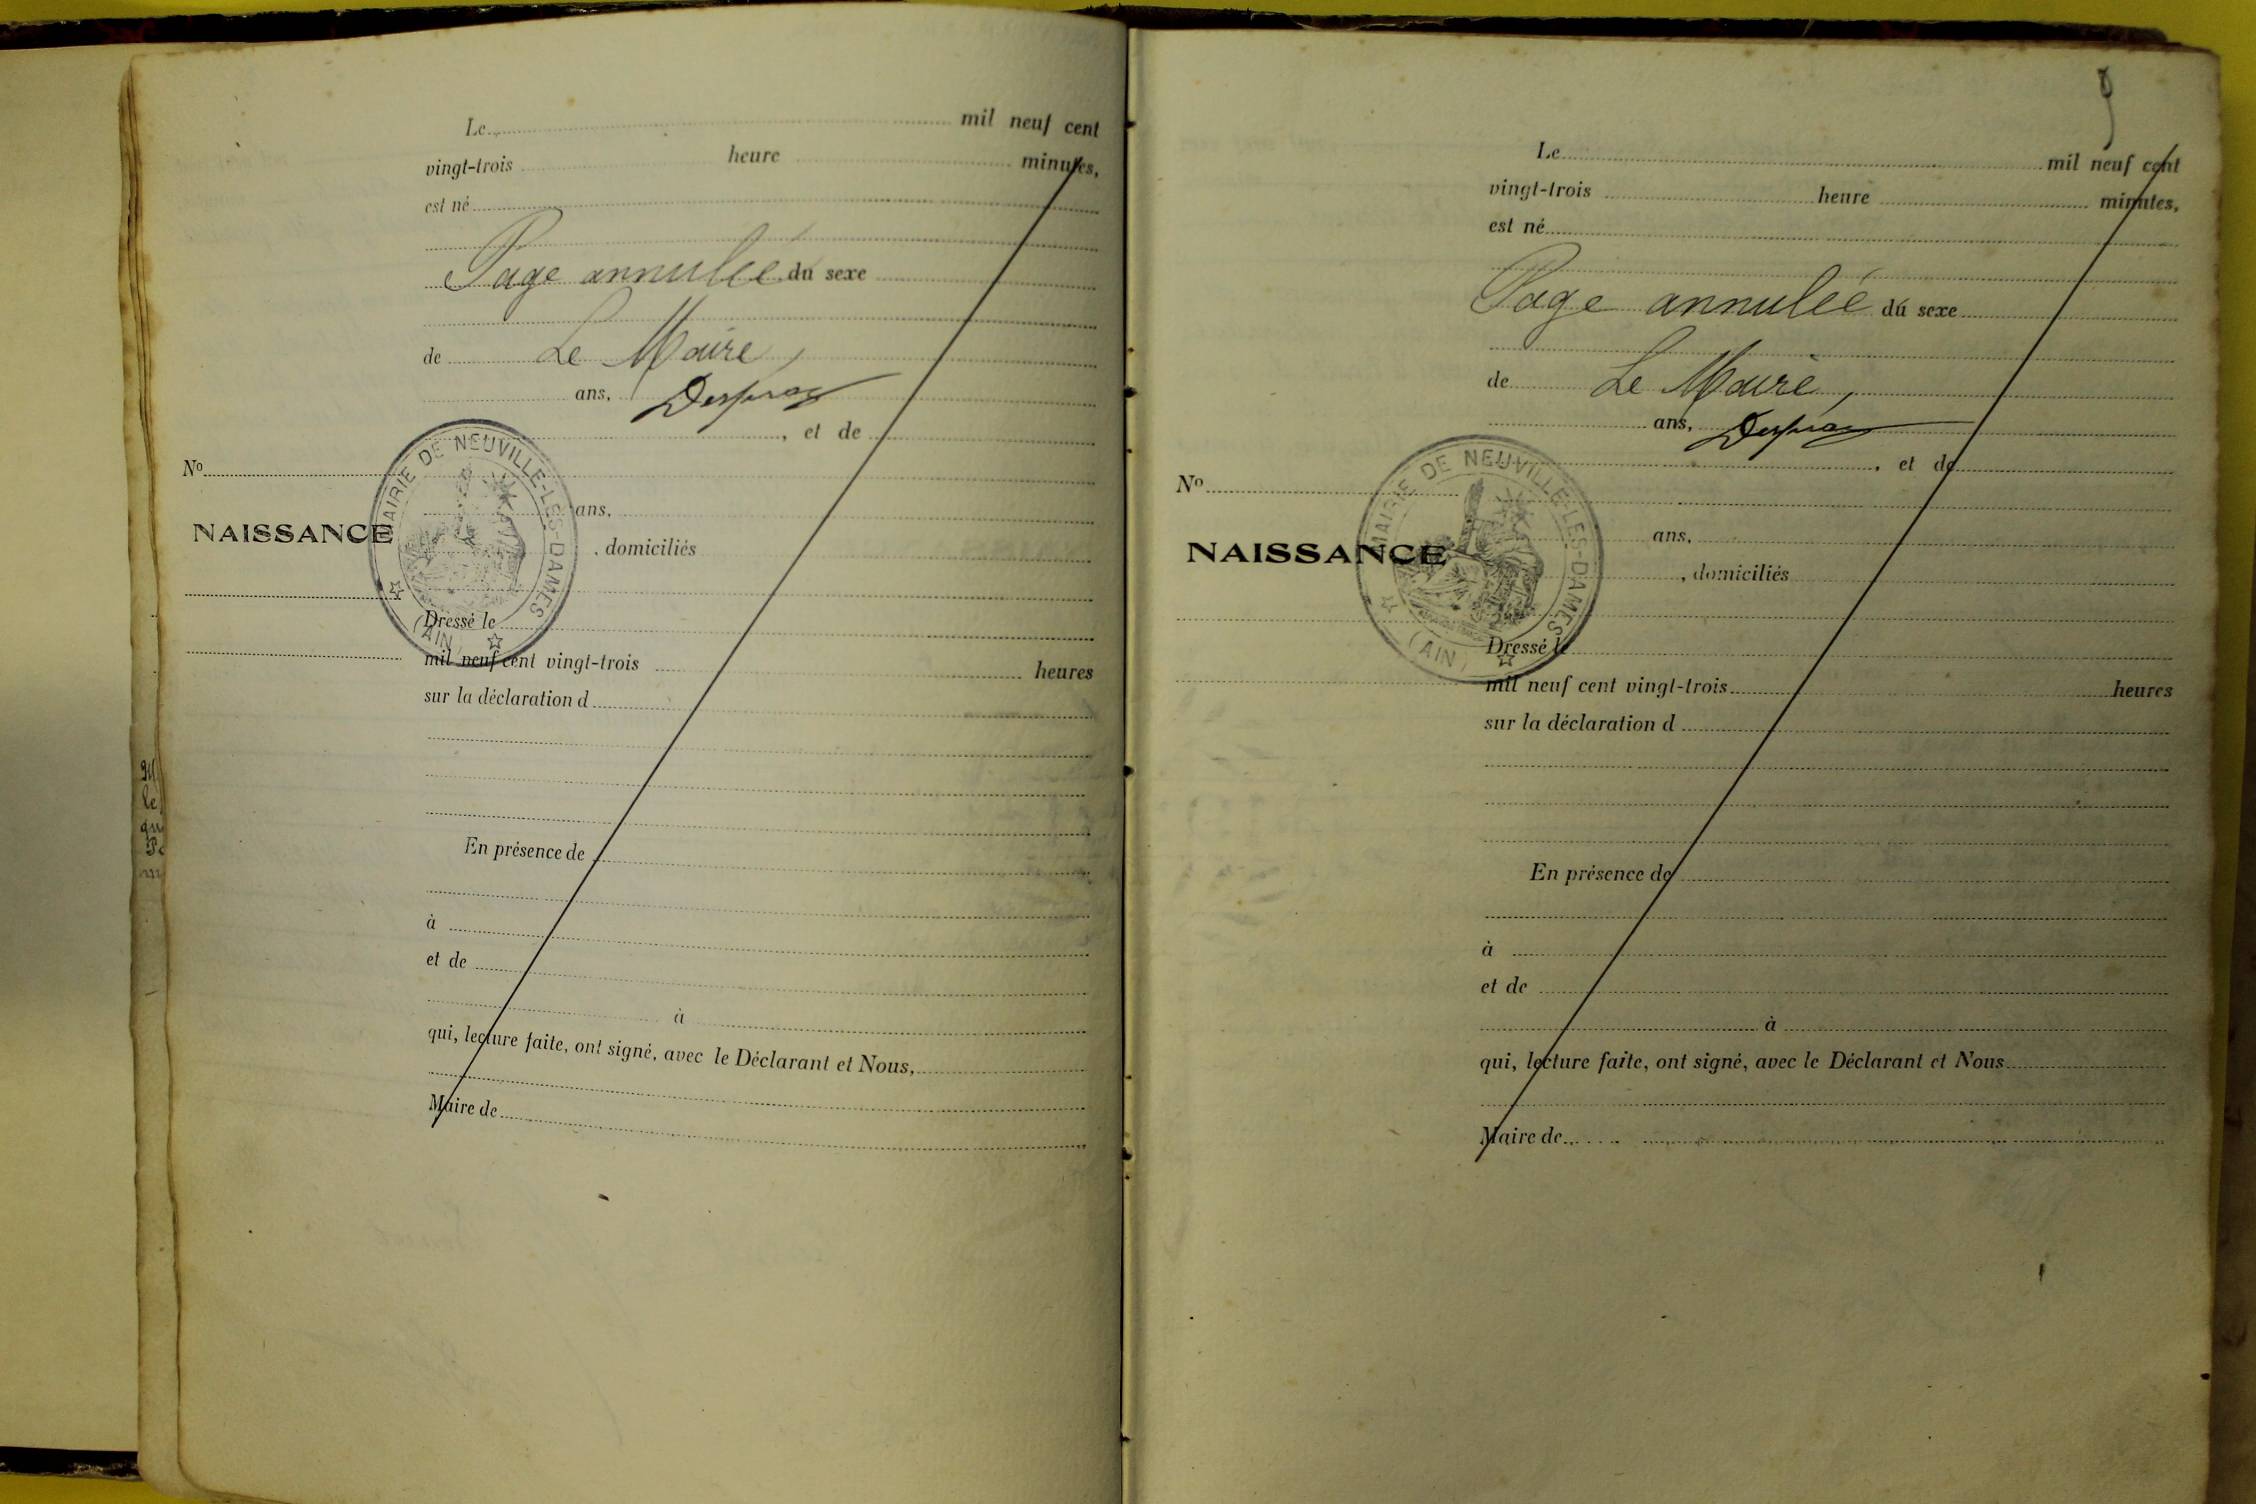 Le mil neuf cent
vingt-trois heure minutes,
est né
Page annulée du sexe
de Le Maire,
ans,
, et de
No
ans,
NAISSANCE
, domiciliés
MAIRIE DE NEUVILLE-LES-DAMES
(AIN)
Dressé le
mil neuf cent vingt-trois heures
sur la déclaration d
En présence de
à
et de
à
qui, lecture faite, ont signé, avec le Déclarant et Nous,
Maire de
9
Le mil neuf cent
vingt-trois heure minutes,
est né
Page annulée du sexe
de Le Maire,
ans,
, et de
No
ans,
NAISSANCE
, domiciliés
MAIRIE DE NEUVILLE-LES-DAMES
(AIN)
Dressé le
mil neuf cent vingt-trois heures
sur la déclaration d
En présence de
à
et de
à
qui, lecture faite, ont signé, avec le Déclarant et Nous
Maire de